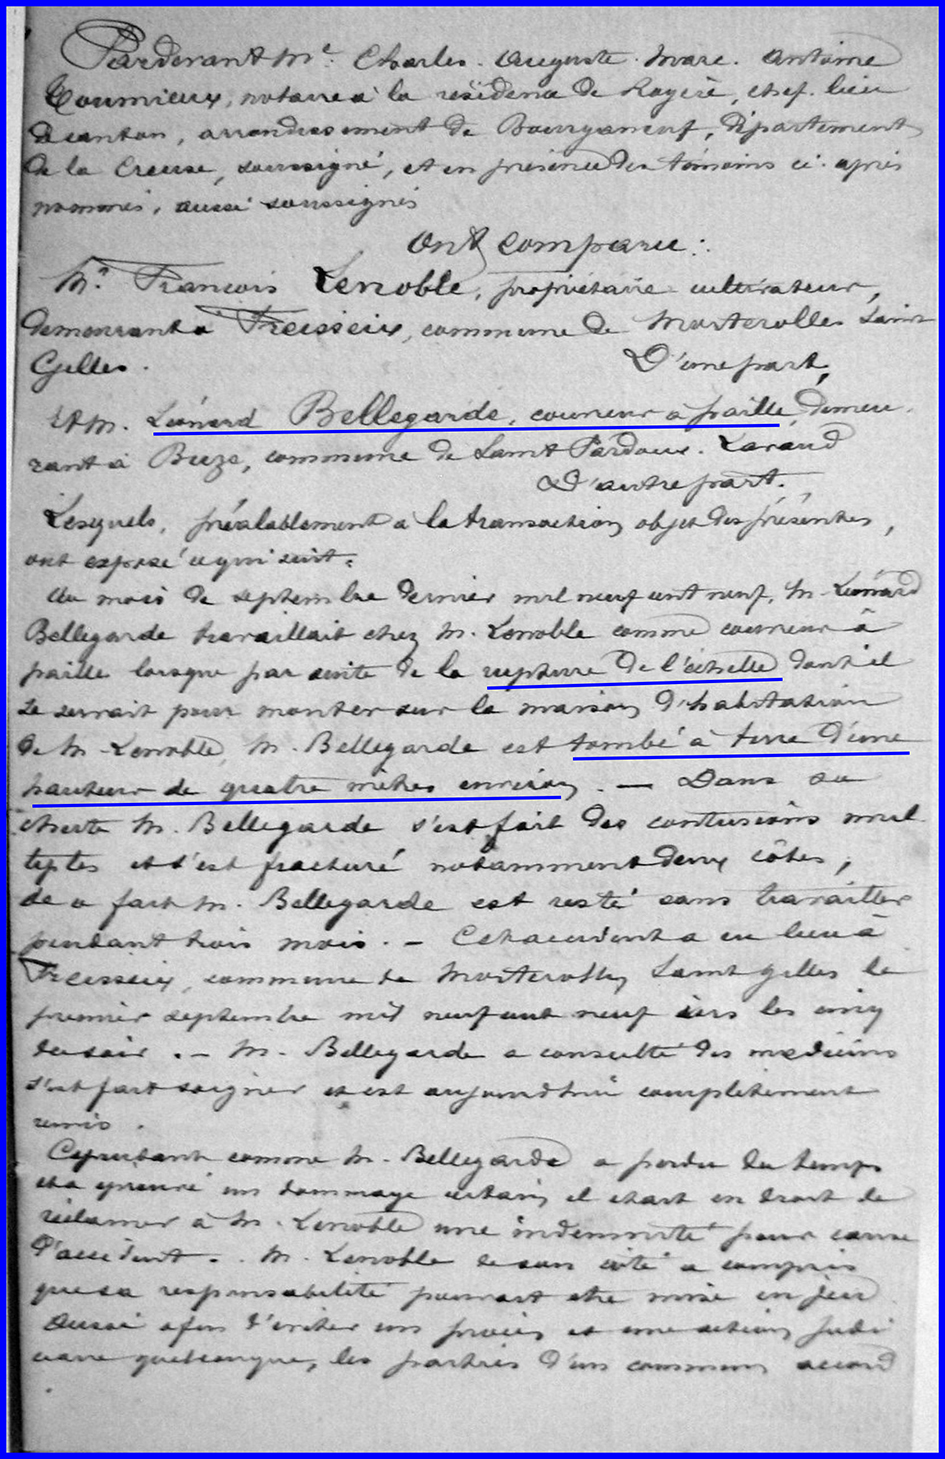 Pardevant Me Charles. Auguste. Marc. Antoine
Toumieux, notaire à la résidence de Royère, chef. lieu
de canton, arrondissement de Bourganeuf, département
de la Creuse, soussigné, et en présence des témoins ci. après
nommés, aussi soussignés
Ont comparu:
M. François Lenoble, propriétaire cultivateur,
demeurant à Freisseix, commune de Morterolles Saint
Gilles.
D'une part,
Et M. Léonard Bellegarde, couvreur à paille, demeu.
rant à Buze, commune de Saint Pardoux. Lavaud
D'autre part.
Lesquels, préalablement à la transaction, objet des présentes,
ont exposé ce qui suit.
Au mois de septembre dernier mil neuf cent neuf, M. Léonard
Bellegarde travaillait chez M. Lenoble comme couvreur à
paille lorsque par suite de la rupture de l'échelle dont il
se servait pour monter sur la maison d'habitation
de M. Lenoble, M. Bellegarde est tombé à terre d'une
hauteur de quatre mètres environ. — Dans sa
chute M. Bellegarde s'est fait des contusions mul
tiples et s'est fracturé notamment deux côtes,
de ce fait M. Bellegarde est resté sans travailler
pendant trois mois. — Cet accident a eu lieu à
Freisseix, commune de Morterolles Saint Gilles le
premier septembre mil neuf cent neuf vers les cinq
du soir. — M. Bellegarde a consulté des médecins
s'est fait soigner et est aujourd'hui complètement
remis.
Cependant comme M. Bellegarde a perdu du temps
et a éprouvé un dommage certain, il était en droit de
réclamer à M. Lenoble une indemnité pour cause
d'accident. M. Lenoble de son côté a compris
que sa responsabilité pouvait être mise en jeu
Aussi afin d'éviter un procès et une action judi
ciaire quelconque, les parties d'un commun accord